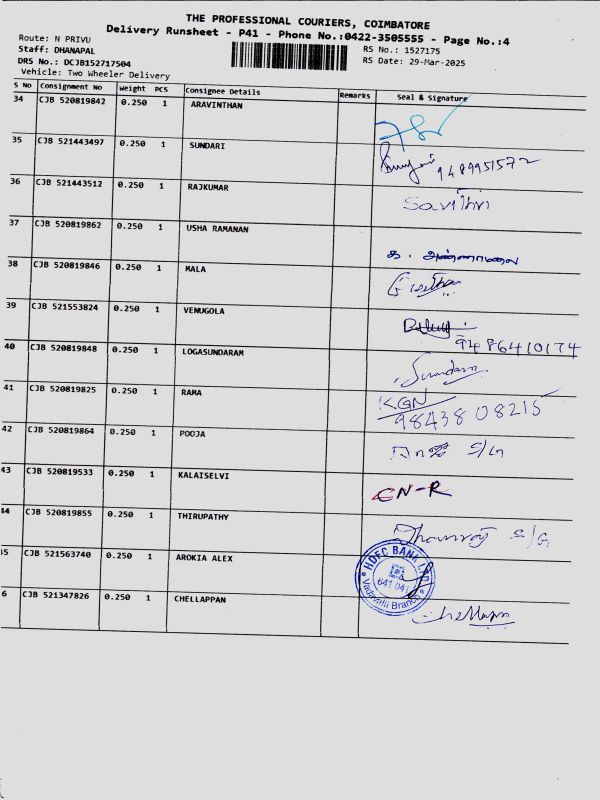 THE PROFESSIONAL COURIERS, COIMBATORE
Delivery Runsheet - P41 - Phone No.:0422-3505555 - Page No.:4
Route: N PRIVU
RS No.: 1527175
Staff: DHANAPAL
RS Date: 29-Mar-2025
DRS No.: DCJB152717504
Vehicle: Two Wheeler Delivery
S No Consignment No Weight PCS Consignee Details Remarks Seal & Signature
34 CJB 520819842 0.250 1 ARAVINTHAN
35 CJB 521443497 0.250 1 SUNDARI
9489951572
36 CJB 521443512 0.250 1 RAJKUMAR
Savithri
37 CJB 520819862 0.250 1 USHA RAMANAN
க. அண்ணாமலை
38 CJB 520819846 0.250 1 MALA
39 CJB 521553824 0.250 1 VENUGOLA
9486410174
40 CJB 520819848 0.250 1 LOGASUNDARAM
Sundaram
41 CJB 520819825 0.250 1 RAMA
KGN
98438 08215
42 CJB 520819864 0.250 1 POOJA
S/G
43 CJB 520819533 0.250 1 KALAISELVI
CN-R
44 CJB 520819855 0.250 1 THIRUPATHY
S/G
45 CJB 521563740 0.250 1 AROKIA ALEX
HDFC BANK LTD
641 041
Vadavalli Branch
6 CJB 521347826 0.250 1 CHELLAPPAN